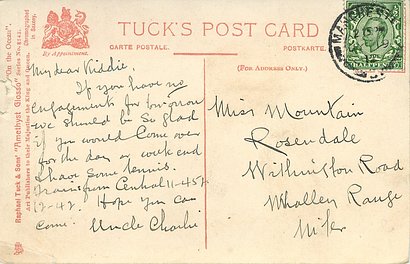 TUCK'S POST CARD
CARTE POSTALE.
POSTKARTE.
By Appointment.
(FOR ADDRESS ONLY.)
Raphael Tuck & Sons' "Amethyst Glosso"
"On the Ocean".
Art Publishers to Their Majesties the King and Queen.
Chromographed in Saxony.
MANCHESTER
HALFPENNY
My dear Kiddie.
If you have no
engagement for tomorrow
we should be so glad
if you would come over
for the day or week end
& have some tennis.
Trains from Central 11-45 &
12-42. Hope you can
come. Uncle Charlie
Miss Mountain
Rosendale
Withington Road
Whalley Range
M/cr